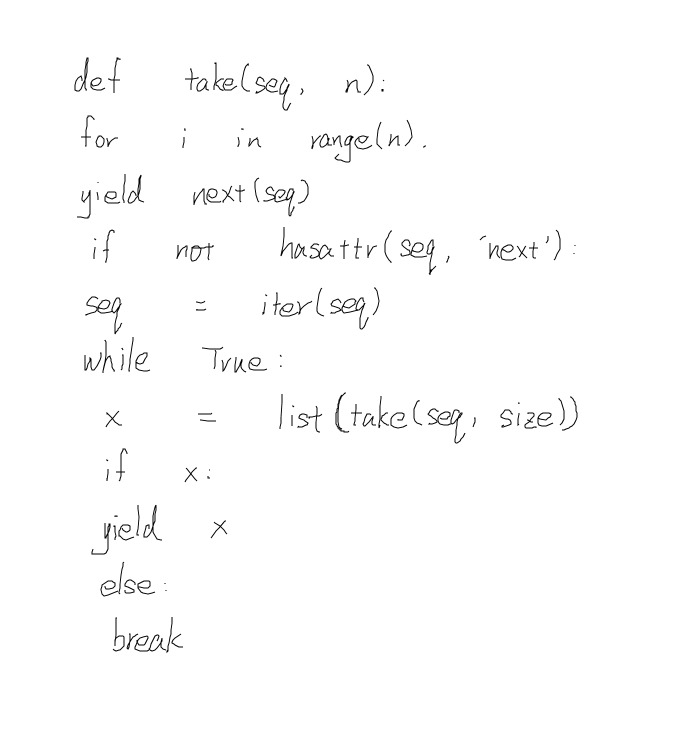 def take(seq, n):
for i in range(n).
yield next(seq)
if not hasattr(seq, 'next'):
seq = iter(seq)
while True:
x = list(take(seq, size))
if x:
yield x
else:
break